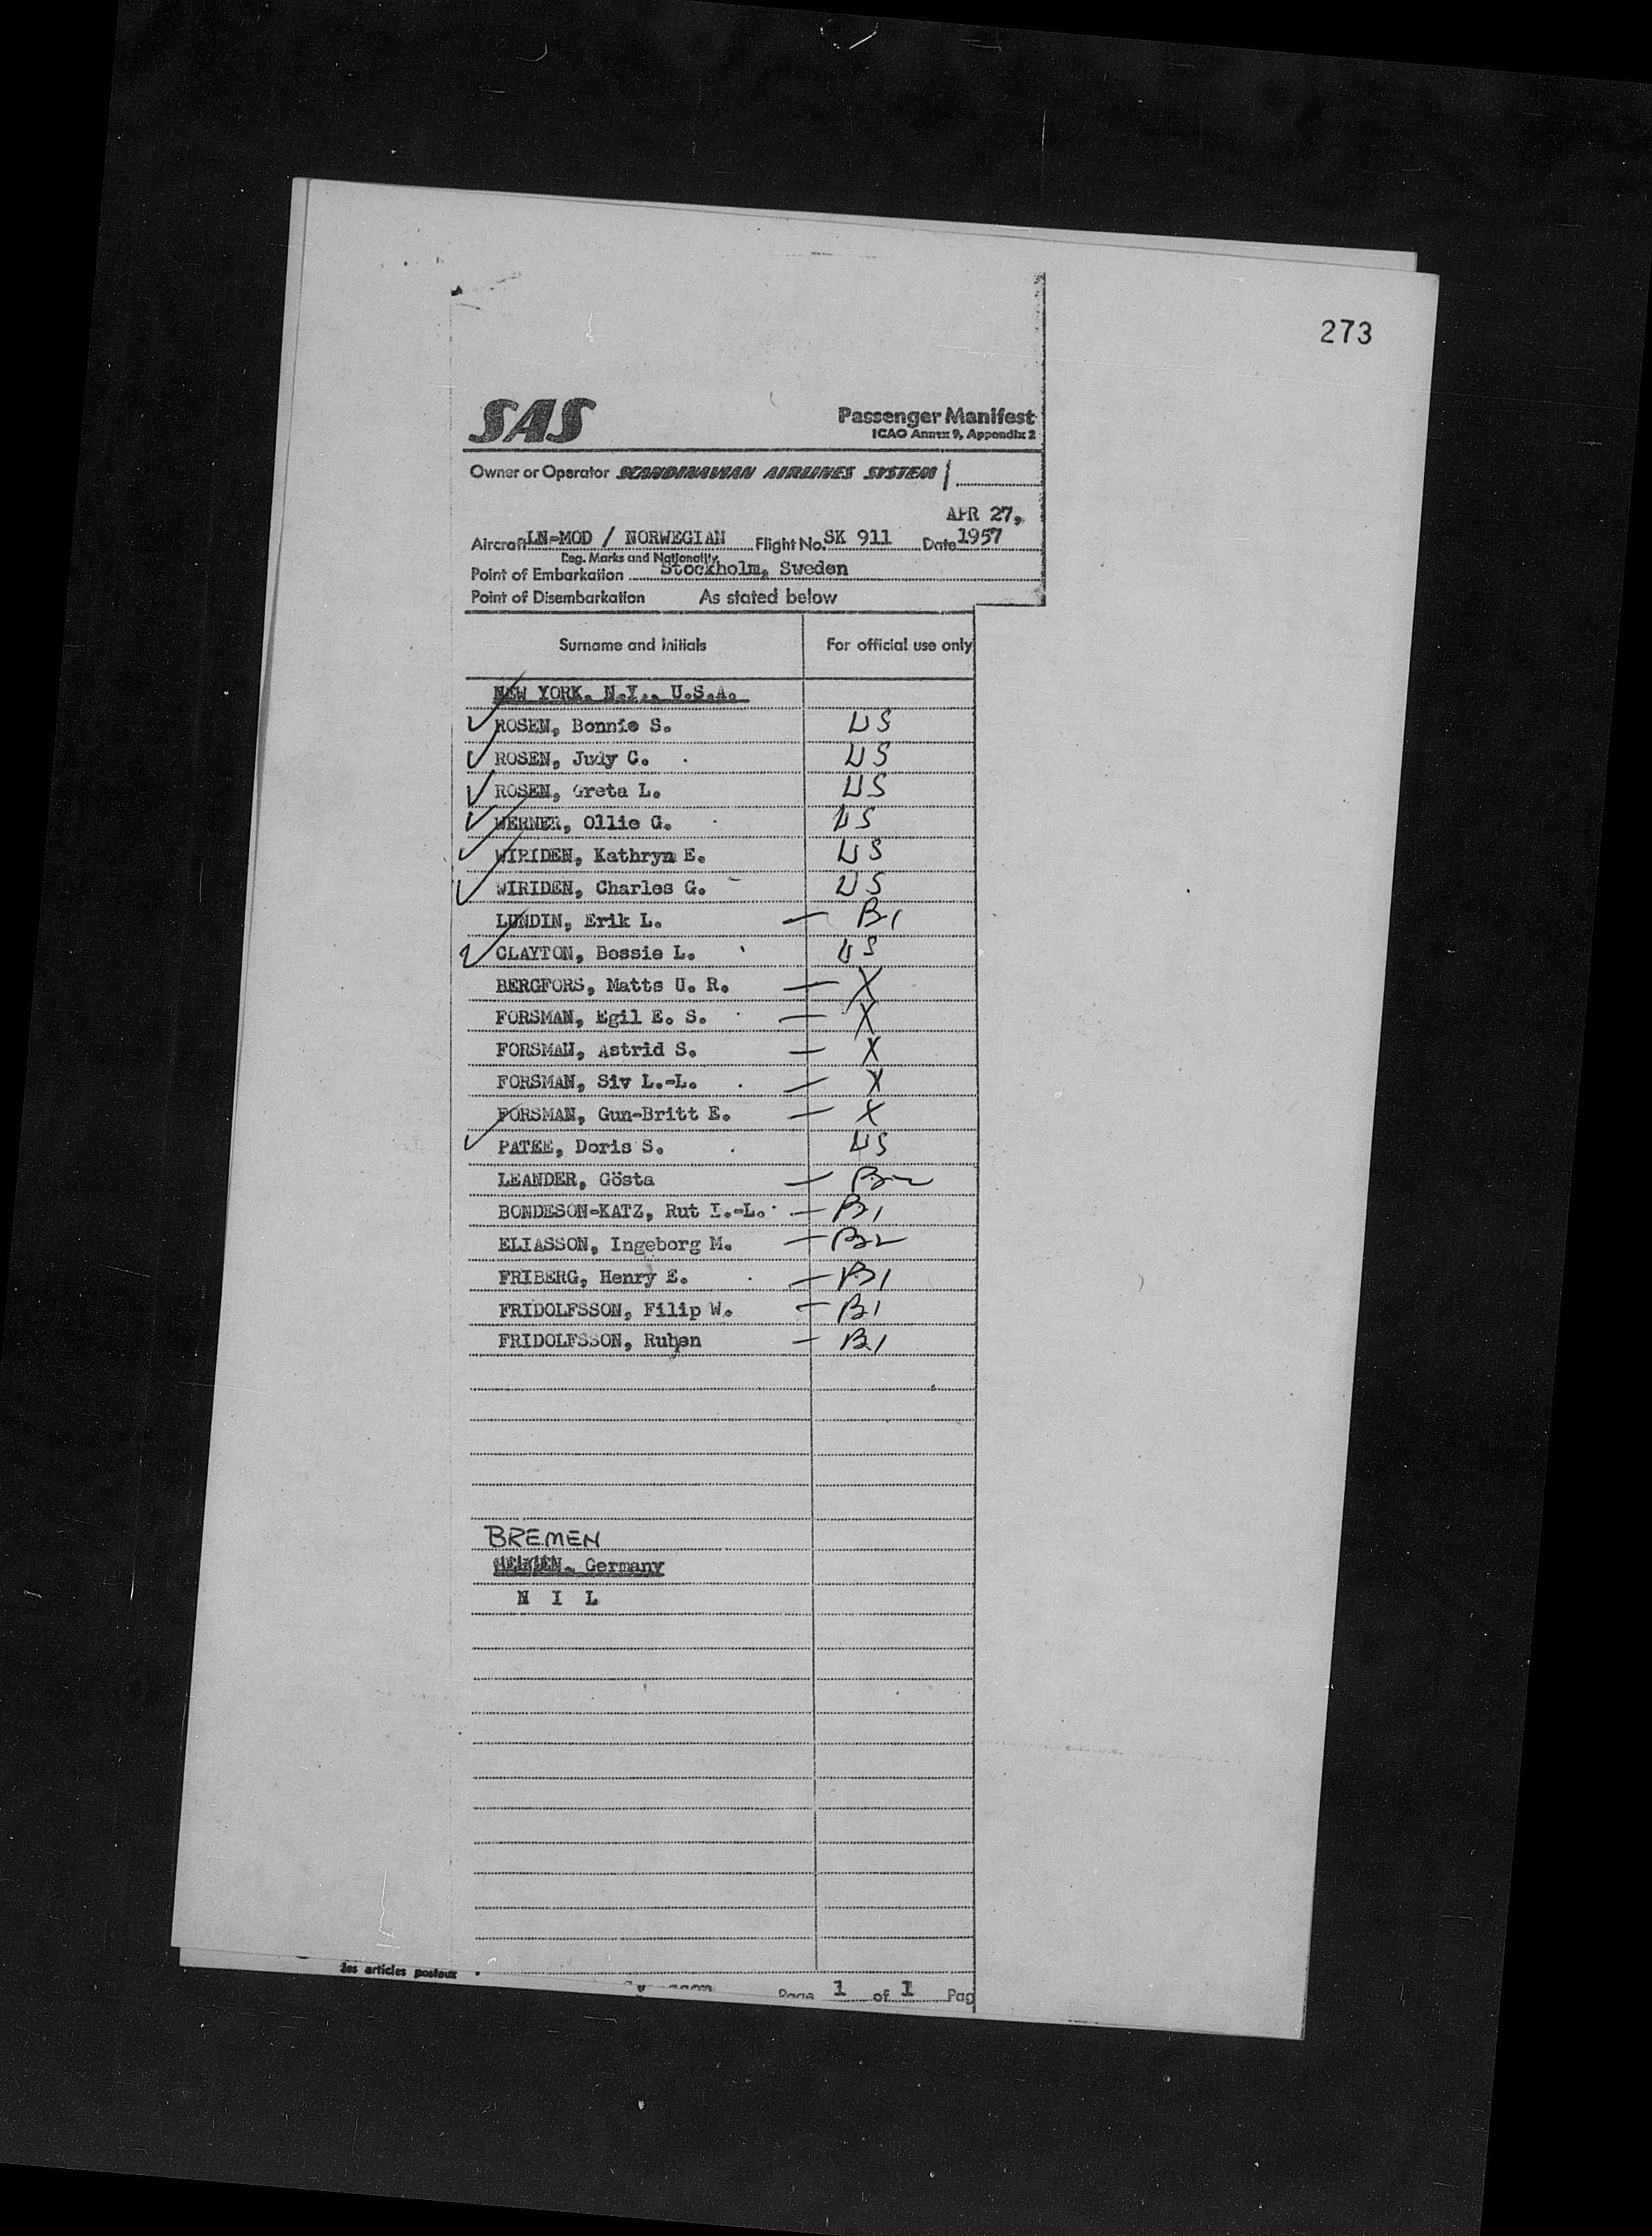 273
SAS
Passenger Manifest
ICAO Annex 9, Appendix 2
Owner or Operator SCANDINAVIAN AIRLINES SYSTEM
APR 27,
Aircraft LN-MOD / NORWEGIAN Flight No. SK 911 Date 1957
Reg. Marks and Nationality
Point of Embarkation Stockholm, Sweden
Point of Disembarkation As stated below
Surname and initials For official use only
NEW YORK. N.Y., U.S.A.
ROSEN, Bonnie S. US
ROSEN, Judy C. US
ROSEN, Greta L. US
WERNER, Ollie G. US
WIRIDEN, Kathryn E. US
WIRIDEN, Charles G. US
LUNDIN, Erik L. — B1
CLAYTON, Bessie L. US
BERGFORS, Matts U. R. — X
FORSMAN, Egil E. S. — X
FORSMAN, Astrid S. — X
FORSMAN, Siv L.-L. — X
FORSMAN, Gun-Britt E. — X
PATEE, Doris S. US
LEANDER, Gösta — B2
BONDESON-KATZ, Rut I.-L. — B1
ELIASSON, Ingeborg M. — B2
FRIBERG, Henry E. — B1
FRIDOLFSSON, Filip W. — B1
FRIDOLFSSON, Ruben — B1
BREMEN
Germany
N I L
des articles postaux
Page 1 of 1 Pag